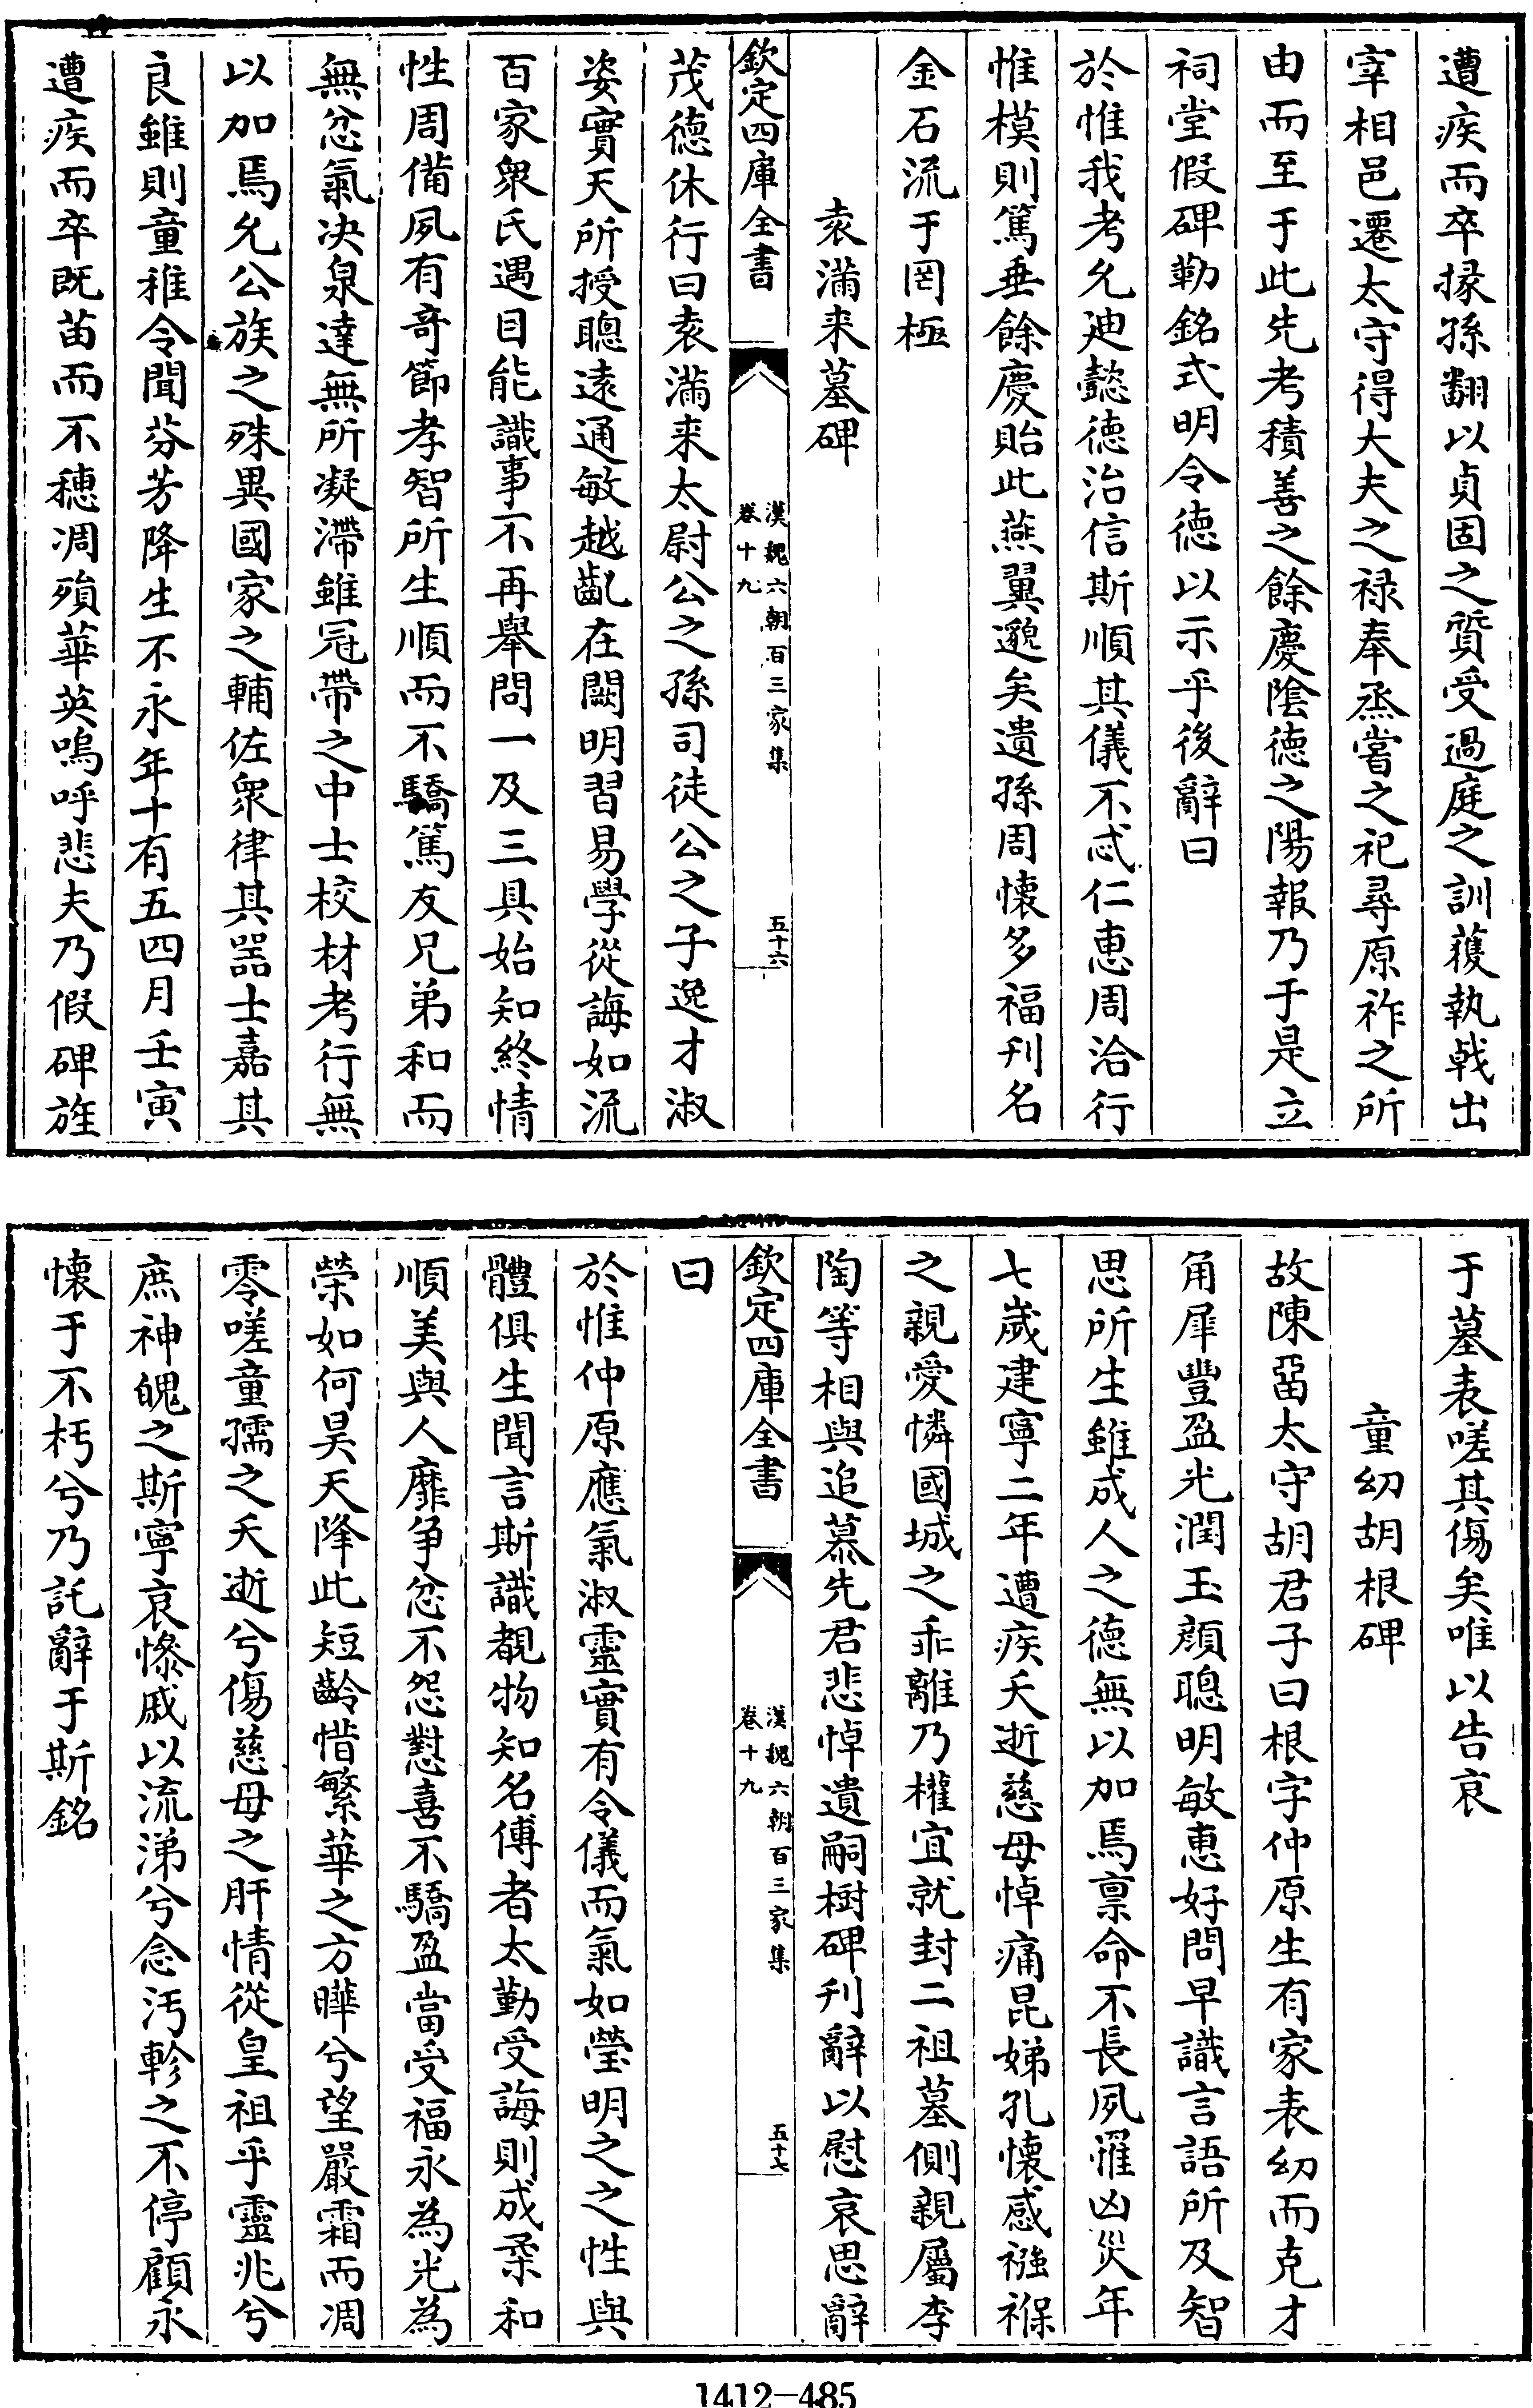 遭疾而卒掾孫翻以貞固之質受過庭之訓獲執戟出
宰相邑遷太守得大夫之祿奉烝嘗之祀尋原祚之所
由而至于此先考積善之餘慶陰德之陽報乃于是立
祠堂假碑勒銘式明令德以示乎後辭曰
於惟我考允迪懿德治信斯順其儀不忒仁恵周洽行
惟模則篤垂餘慶貽此燕翼邈矣遺孫周懐多福刋名
金石流于罔極
袁滿来墓碑
欽定四庫全書
漢魏六朝百三家集
卷十九
五十六
茂徳休行曰袁滿来太尉公之孫司徒公之子逸才淑
姿實天所授聰遠通敏越齔在闕明習易學從誨如流
百家衆氏遇目能識事不再舉問一及三具始知終情
性周備夙有奇節孝智所生順而不驕篤友兄弟和而
無忿氣决泉達無所凝滯雖冠帶之中士校材考行無
以加焉允公族之殊異國家之輔佐衆律其器士嘉其
良雖則童稚令聞芬芳降生不永年十有五四月壬寅
遭疾而卒既苗而不穗凋殞華英嗚呼悲夫乃假碑旌
于墓表嗟其傷矣唯以告哀
童幼胡根碑
故陳畱太守胡君子曰根字仲原生有家表幼而克才
角犀豐盈光潤玉顔聰明敏恵好問早識言語所及智
思所生雖成人之德無以加焉禀命不長夙罹凶災年
七歲建寧二年遭疾夭逝慈母悼痛昆娣孔懐感襁褓
之親愛憐國城之乖離乃權宜就封二祖墓側親屬李
陶等相與追慕先君悲悼遺嗣樹碑刋辭以慰哀思辭
欽定四庫全書
漢魏六朝百三家集
卷十九
五十七
曰
於惟仲原應氣淑靈實有令儀而氣如瑩明之之性與
體俱生聞言斯識覩物知名傅者太勤受誨則成柔和
順美與人靡争忿不怨懟喜不驕盈當受福永為光為
榮如何昊天降此短齡惜繁華之方曄兮望嚴霜而凋
零嗟童孺之夭逝兮傷慈母之肝情從皇祖乎靈兆兮
庶神魄之斯寧哀慘戚以流涕兮念污軫之不停顧永
懐于不朽兮乃託辭于斯銘
1412—485